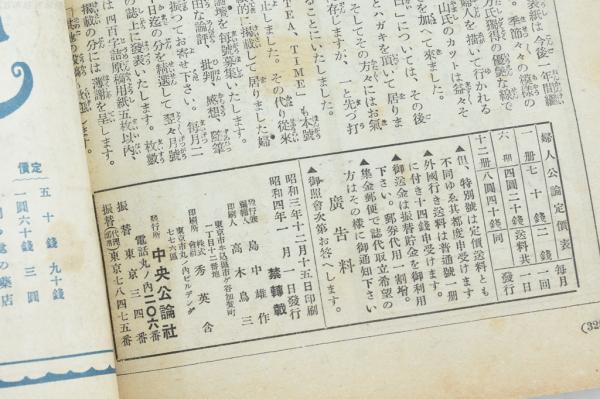 表紙は今後一年間繼
方氏獨得の優艶な線で
季節々々の模樣の
婦人を描いて行かれる
山氏のカツトは益々そ
を加へて來ました。
白」については、その後
とハガキを頂いて居りま
そしてその方々にはお氣
存じますが、と先づ打
ることにいたしました。
TEA, TIME」も本號
しました。その代り從來
きに掲載して居りました婦
論壇を每號募集いたします。
由な論評、批判、感想、隨筆
振つてお寄せ下さい。每月二
日迄の分を精選して翌々月號
の誌上に發表いたします。枚數
は四百字詰原稿用紙五枚以內、
掲載の分には薄謝を呈します。
婦人公論定價表
一册 七十錢 二錢 一回 每月
六册 四圓二十錢 送料共 一日
十二册 八圓四十錢 同 發行
▲但、特別號は定價送料とも
不同ゆゑ其都度申受けます
▲外國行き送料は普通號一册
に付き十四錢申受けます。
▲御送金は振替貯金を御利用
下さい。郵券代用一割增。
▲集金郵便で誌代取立希望の
方はその樣に御通知下さい
廣告料
▲御照會次第お答へします。
昭和三年十二月十五日印刷
昭和四年一月一日發行
禁轉載
發行兼編輯人 島中雄作
印刷人 高木鳥三
東京市牛込區市ケ谷加賀町一丁目十二番地
印刷所 株式會社 秀英舍
東京市丸ノ內ビルデング七七六區
發行所 中央公論社
電話丸ノ內二〇六番
振替東京三四番
振替東京七八四七五番
定價
五十錢 九十錢
一圓六十錢 三圓
の藥店
(32